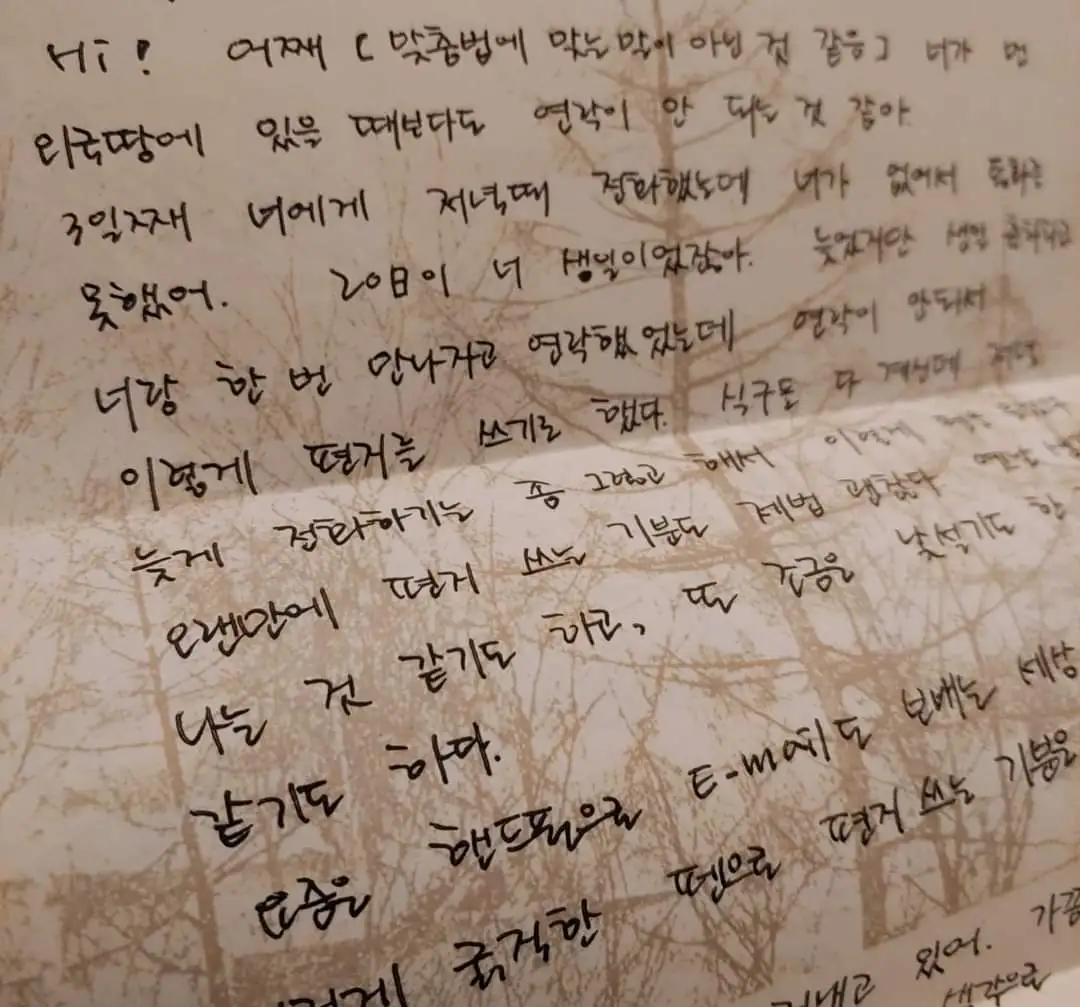 Hi! 어째 [맞춤법에 맞는 말이 아닌 것 같음] 너가 먼
외국땅에 있을 때보다도 연락이 안 되는 것 같아
3일째 너에게 저녁때 전화했는데 너가 없어서 통화는
못했어. 20日이 너 생일이었잖아. 늦었지만 생일 축하하고
너랑 한 번 만나자고 연락했었는데 연락이 안되서
이렇게 편지를 쓰기로 했다. 식구들 다 계신데 저녁
늦게 전화하기는 좀 그렇고 해서 이렇게
오랜만에 편지 쓰는 기분도 제법 괜찮다 옛날
나는 것 같기도 하고, 또 조금은 낯설기도 한
같기도 하다.
요즘은 핸드폰으로 E-mail도 보내는 세상
굵직한 펜으로 편지 쓰는 기분은
있어. 가끔
생각으로